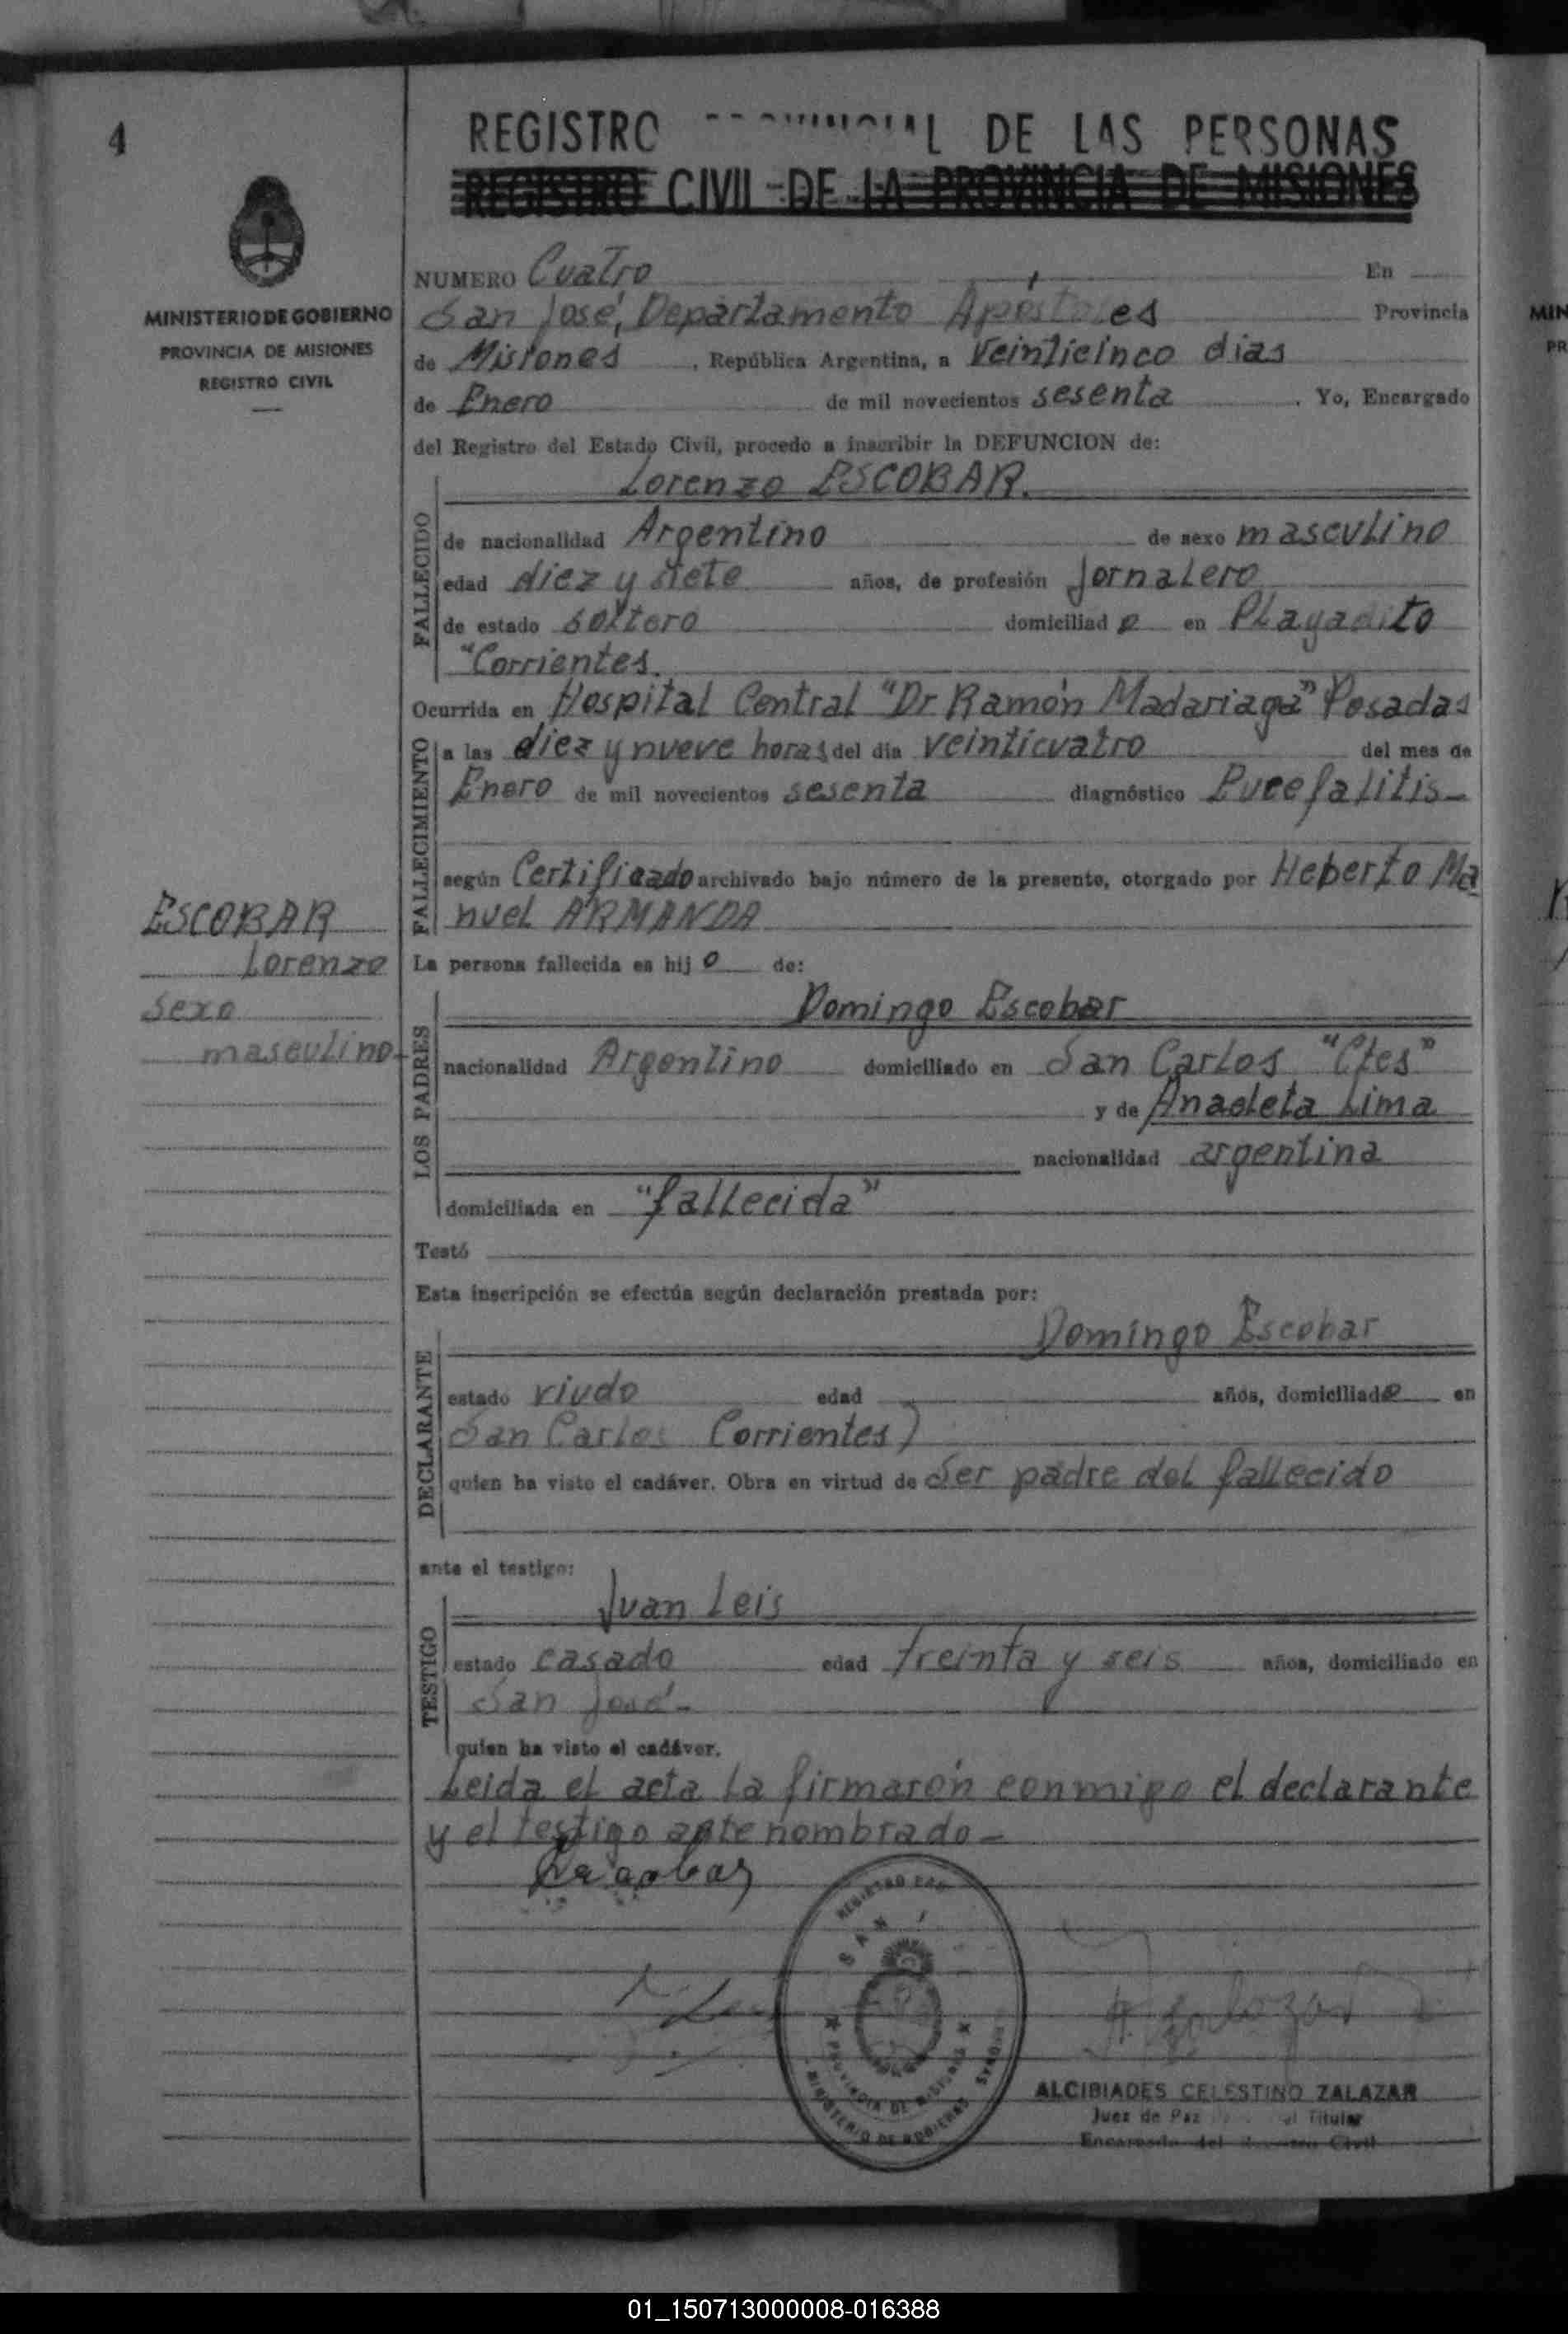 4
REGISTRO PROVINCIAL DE LAS PERSONAS
REGISTRO CIVIL DE LA PROVINCIA DE MISIONES
MINISTERIO DE GOBIERNO
PROVINCIA DE MISIONES
REGISTRO CIVIL
NUMERO Cuatro En
San José, Departamento Apóstoles Provincia
de Misiones, República Argentina, a Veinticinco dias
de Enero de mil novecientos sesenta. Yo, Encargado
del Registro del Estado Civil, procedo a inscribir la DEFUNCION de:
Lorenzo ESCOBAR.
FALLECIDO
de nacionalidad Argentino de sexo masculino
edad diez y siete años, de profesión Jornalero
de estado soltero domiciliad o en Playadito
"Corrientes.
Ocurrida en Hospital Central "Dr Ramón Madariaga" Posadas
FALLECIMIENTO
a las diez y nueve horas del día veinticuatro del mes de
Enero de mil novecientos sesenta diagnóstico Eucefalitis-
según Certificado archivado bajo número de la presente, otorgado por Heberto Ma
nuel ARMANDA
ESCOBAR
Lorenzo
Sexo
masculino-
La persona fallecida es hij o de:
LOS PADRES
Domingo Escobar
nacionalidad Argentino domiciliado en San Carlos "Ctes"
y de Anacleta Lima
nacionalidad argentina
domiciliada en "fallecida"
Testó
Esta inscripción se efectúa según declaración prestada por:
DECLARANTE
Domingo Escobar
estado viudo edad años, domiciliado en
San Carlos Corrientes)
quien ha visto el cadáver. Obra en virtud de Ser padre del fallecido
ante el testigo:
TESTIGO
Juan Leis
estado casado edad treinta y seis años, domiciliado en
San José-
quien ha visto el cadáver.
Leida el acta la firmarón conmigo el declarante
y el testigo ante nombrado-
Escobar
REGISTRO
SAN J
PROVINCIA DE MISIONES
MINISTERIO DE GOBIERNO
ALCIBIADES CELESTINO ZALAZAR
Juez de Paz Titular
Encargado del Registro Civil
MIN
PR
01_150713000008-016388